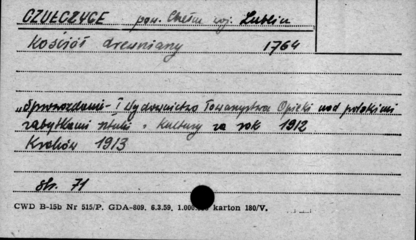 CZUŁCZYCE pow. Chełm woj. Lublin
Kościół drewniany 1764
„Sprawozdanie i Wydawnictwo Towarzystwa Opieki nad polskimi
zabytkami sztuki i Kultury za rok 1912
Kraków 1913
str. 71
CWD B-15b Nr 515/P. GDA-809. 6.3.59. 1.000. karton 180/V.